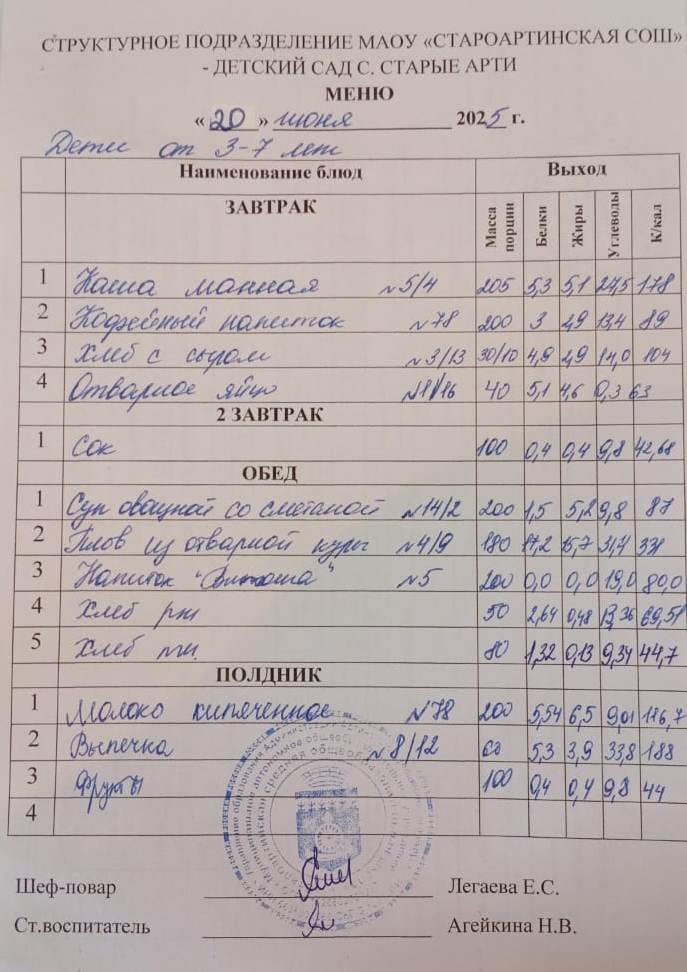 СТРУКТУРНОЕ ПОДРАЗДЕЛЕНИЕ МАОУ «СТАРОАРТИНСКАЯ СОШ»
- ДЕТСКИЙ САД С. СТАРЫЕ АРТИ
МЕНЮ
«20» июня 2025 г.
Дети от 3-7 лет
Наименование блюд Выход
ЗАВТРАК Масса порции Белки Жиры Углеводы К/кал
1 Каша манная №5/4 205 5,3 5,1 27,5 178
2 Кофейный напиток №78 200 3 2,9 13,4 89
3 Хлеб с сыром №3/13 30/10 4,9 2,9 14,0 104
4 Отварное яйцо 40 5,1 4,6 0,3 63
2 ЗАВТРАК
1 Сок 100 0,4 0,4 9,8 42,68
ОБЕД
1 Суп овощной со сметаной №14/2 200 1,5 5,2 9,8 87
2 Плов из отварной куры №4/9 180 17,2 15,7 31,4 331
3 Напиток "Витоша" №5 200 0,0 0,0 19,0 80,0
4 Хлеб рж 50 2,64 0,48 13,36 69,51
5 Хлеб пш. 80 1,32 0,13 9,34 44,7
ПОЛДНИК
1 Молоко кипяченное №78 200 5,54 6,5 9,01 116,7
2 Выпечка №8/12 60 5,3 3,9 33,8 188
3 Фрукты 100 0,4 0,4 9,8 44
4
Шеф-повар Легаева Е.С.
Ст.воспитатель Агейкина Н.В.